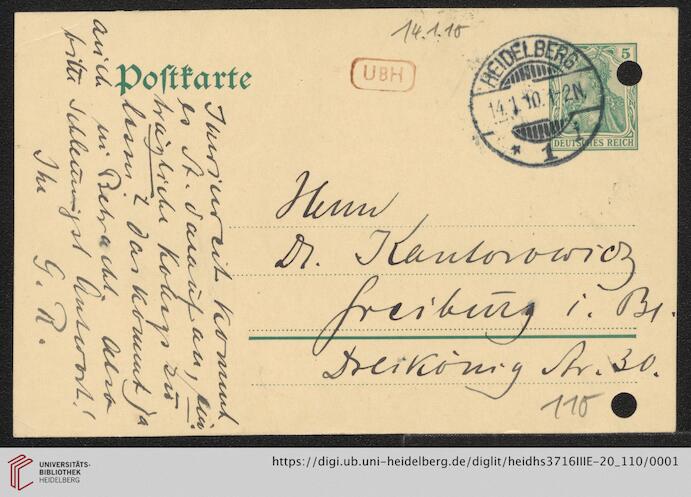 14.1.10
Postkarte
UBH
HEIDELBERG
14.1.10. 1-2N.
* 1 i
5
DEUTSCHES REICH
Herrn
Dr. Kantorowicz
Freiburg i. Br.
Dreikönig Str. 30.
110
Inwieweit kommt
es St. darauf an, ein
trägliche Kollegs zu
lesen? Das kommt ja
auch in Betracht. Also
bitte schleunigst Antwort!
Ihr
G. R.
UNIVERSITÄTS-
BIBLIOTHEK
HEIDELBERG
https://digi.ub.uni-heidelberg.de/diglit/heidhs3716IIIE-20_110/0001